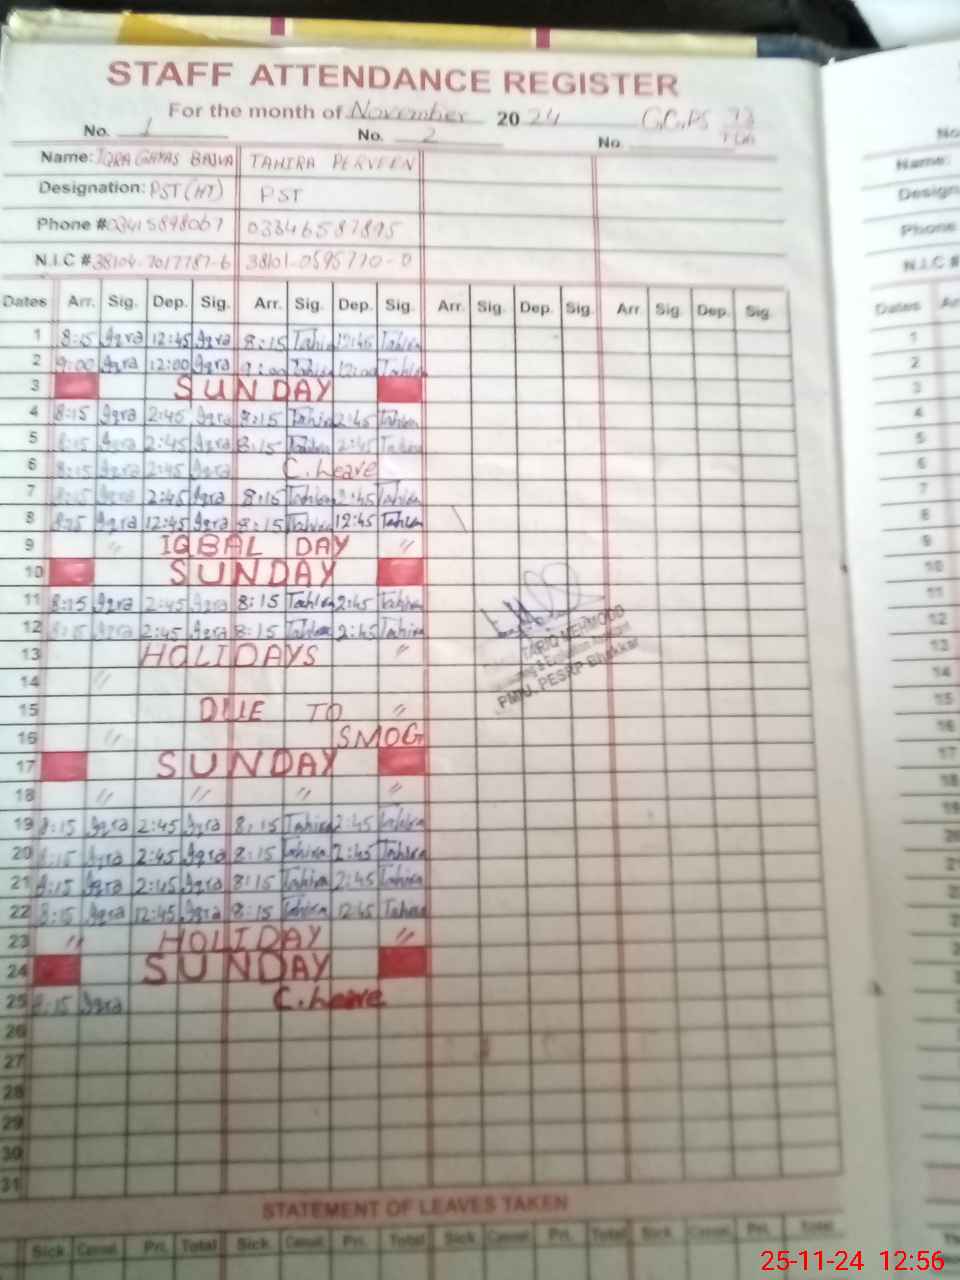 STAFF ATTENDANCE REGISTER
For the month of November 2024 G.C.PS 73 TDA
No. 1 No. 2 No.
Name: IQRA GHYAS BAJWA TAHIRA PERVEEN
Designation: PST (HT) PST
Phone # 03415898067 03346587895
N.I.C # 38104-7017787-6 38101-0595770-0
Dates Arr. Sig. Dep. Sig. Arr. Sig. Dep. Sig. Arr. Sig. Dep. Sig. Arr Sig. Dep. Sig.
1 8:15 Iqra 12:45 Iqra 8:15 Tahira 12:45 Tahira
2 9:00 Iqra 12:00 Iqra 9:00 Tahira 12:00 Tahira
3 SUNDAY
4 8:15 Iqra 2:45 Iqra 8:15 Tahira 2:45 Tahira
5 8:15 Iqra 2:45 Iqra 8:15 Tahira 2:45 Tahira
6 8:15 Iqra 2:45 Iqra C.Leave
7 8:15 Iqra 2:45 Iqra 8:15 Tahira 2:45 Tahira
8 8:15 Iqra 12:45 Iqra 8:15 Tahira 12:45 Tahira
9 〃 IQBAL DAY 〃
10 SUNDAY
11 8:15 Iqra 2:45 Iqra 8:15 Tahira 2:45 Tahira
12 8:15 Iqra 2:45 Iqra 8:15 Tahira 2:45 Tahira
TARIQ MEHMOOD
PMIU, PESRP Bhakkar
13 HOLIDAYS 〃
14 〃
15 DUE TO 〃
16 〃 SMOG
17 SUNDAY
18 〃 〃 〃 〃
19 8:15 Iqra 2:45 Iqra 8:15 Tahira 2:45 Tahira
20 8:15 Iqra 2:45 Iqra 8:15 Tahira 2:45 Tahira
21 8:15 Iqra 2:45 Iqra 8:15 Tahira 2:45 Tahira
22 8:15 Iqra 12:45 Iqra 8:15 Tahira 12:45 Tahira
23 〃 HOLIDAY 〃
24 SUNDAY
25 8:15 Iqra C.Leave
26
27
28
29
30
31
STATEMENT OF LEAVES TAKEN
Sick. Casual. Pri. Total Sick. Casual. Pri. Total Sick Casual Pri. Total Sick. Casual. Pri. Total
No
Name:
Design
Phone
N.I.C #
Dates
1
2
3
4
5
6
7
8
9
10
11
12
13
14
15
16
17
18
25-11-24 12:56